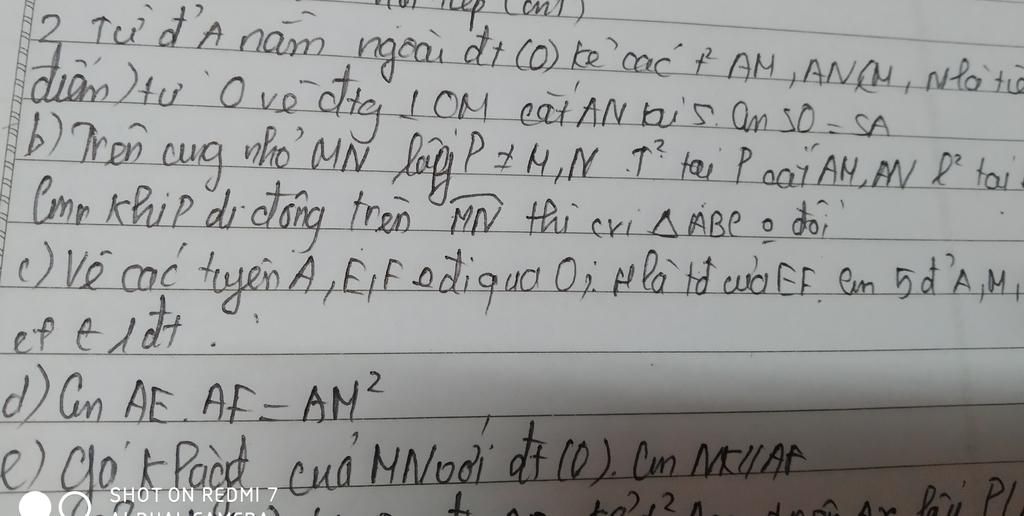 2 Từ đ' A nằm ngoài đt (O) kẻ các t² AM, AN (M, N là tiế
điểm) từ O vẽ đtg ⊥ OM cắt AN tại S. Cm SO = SA
b) Trên cug nhỏ MN lấy P ≠ M, N. T² tại P cắt AM, AN l² tại
Cmr khi P di động trên MN thì cvi △ ABC o đổi
c) Vẽ các tuyến A, E, F o đi qua O; H là tđ của EF. Cm 5 đ' A, M,
cf ∈ 1 đt.
d) Cm AE. AF = AM²
e) Gọi K của MN với đt (O). Cm NK // AF
SHOT ON REDMI 7